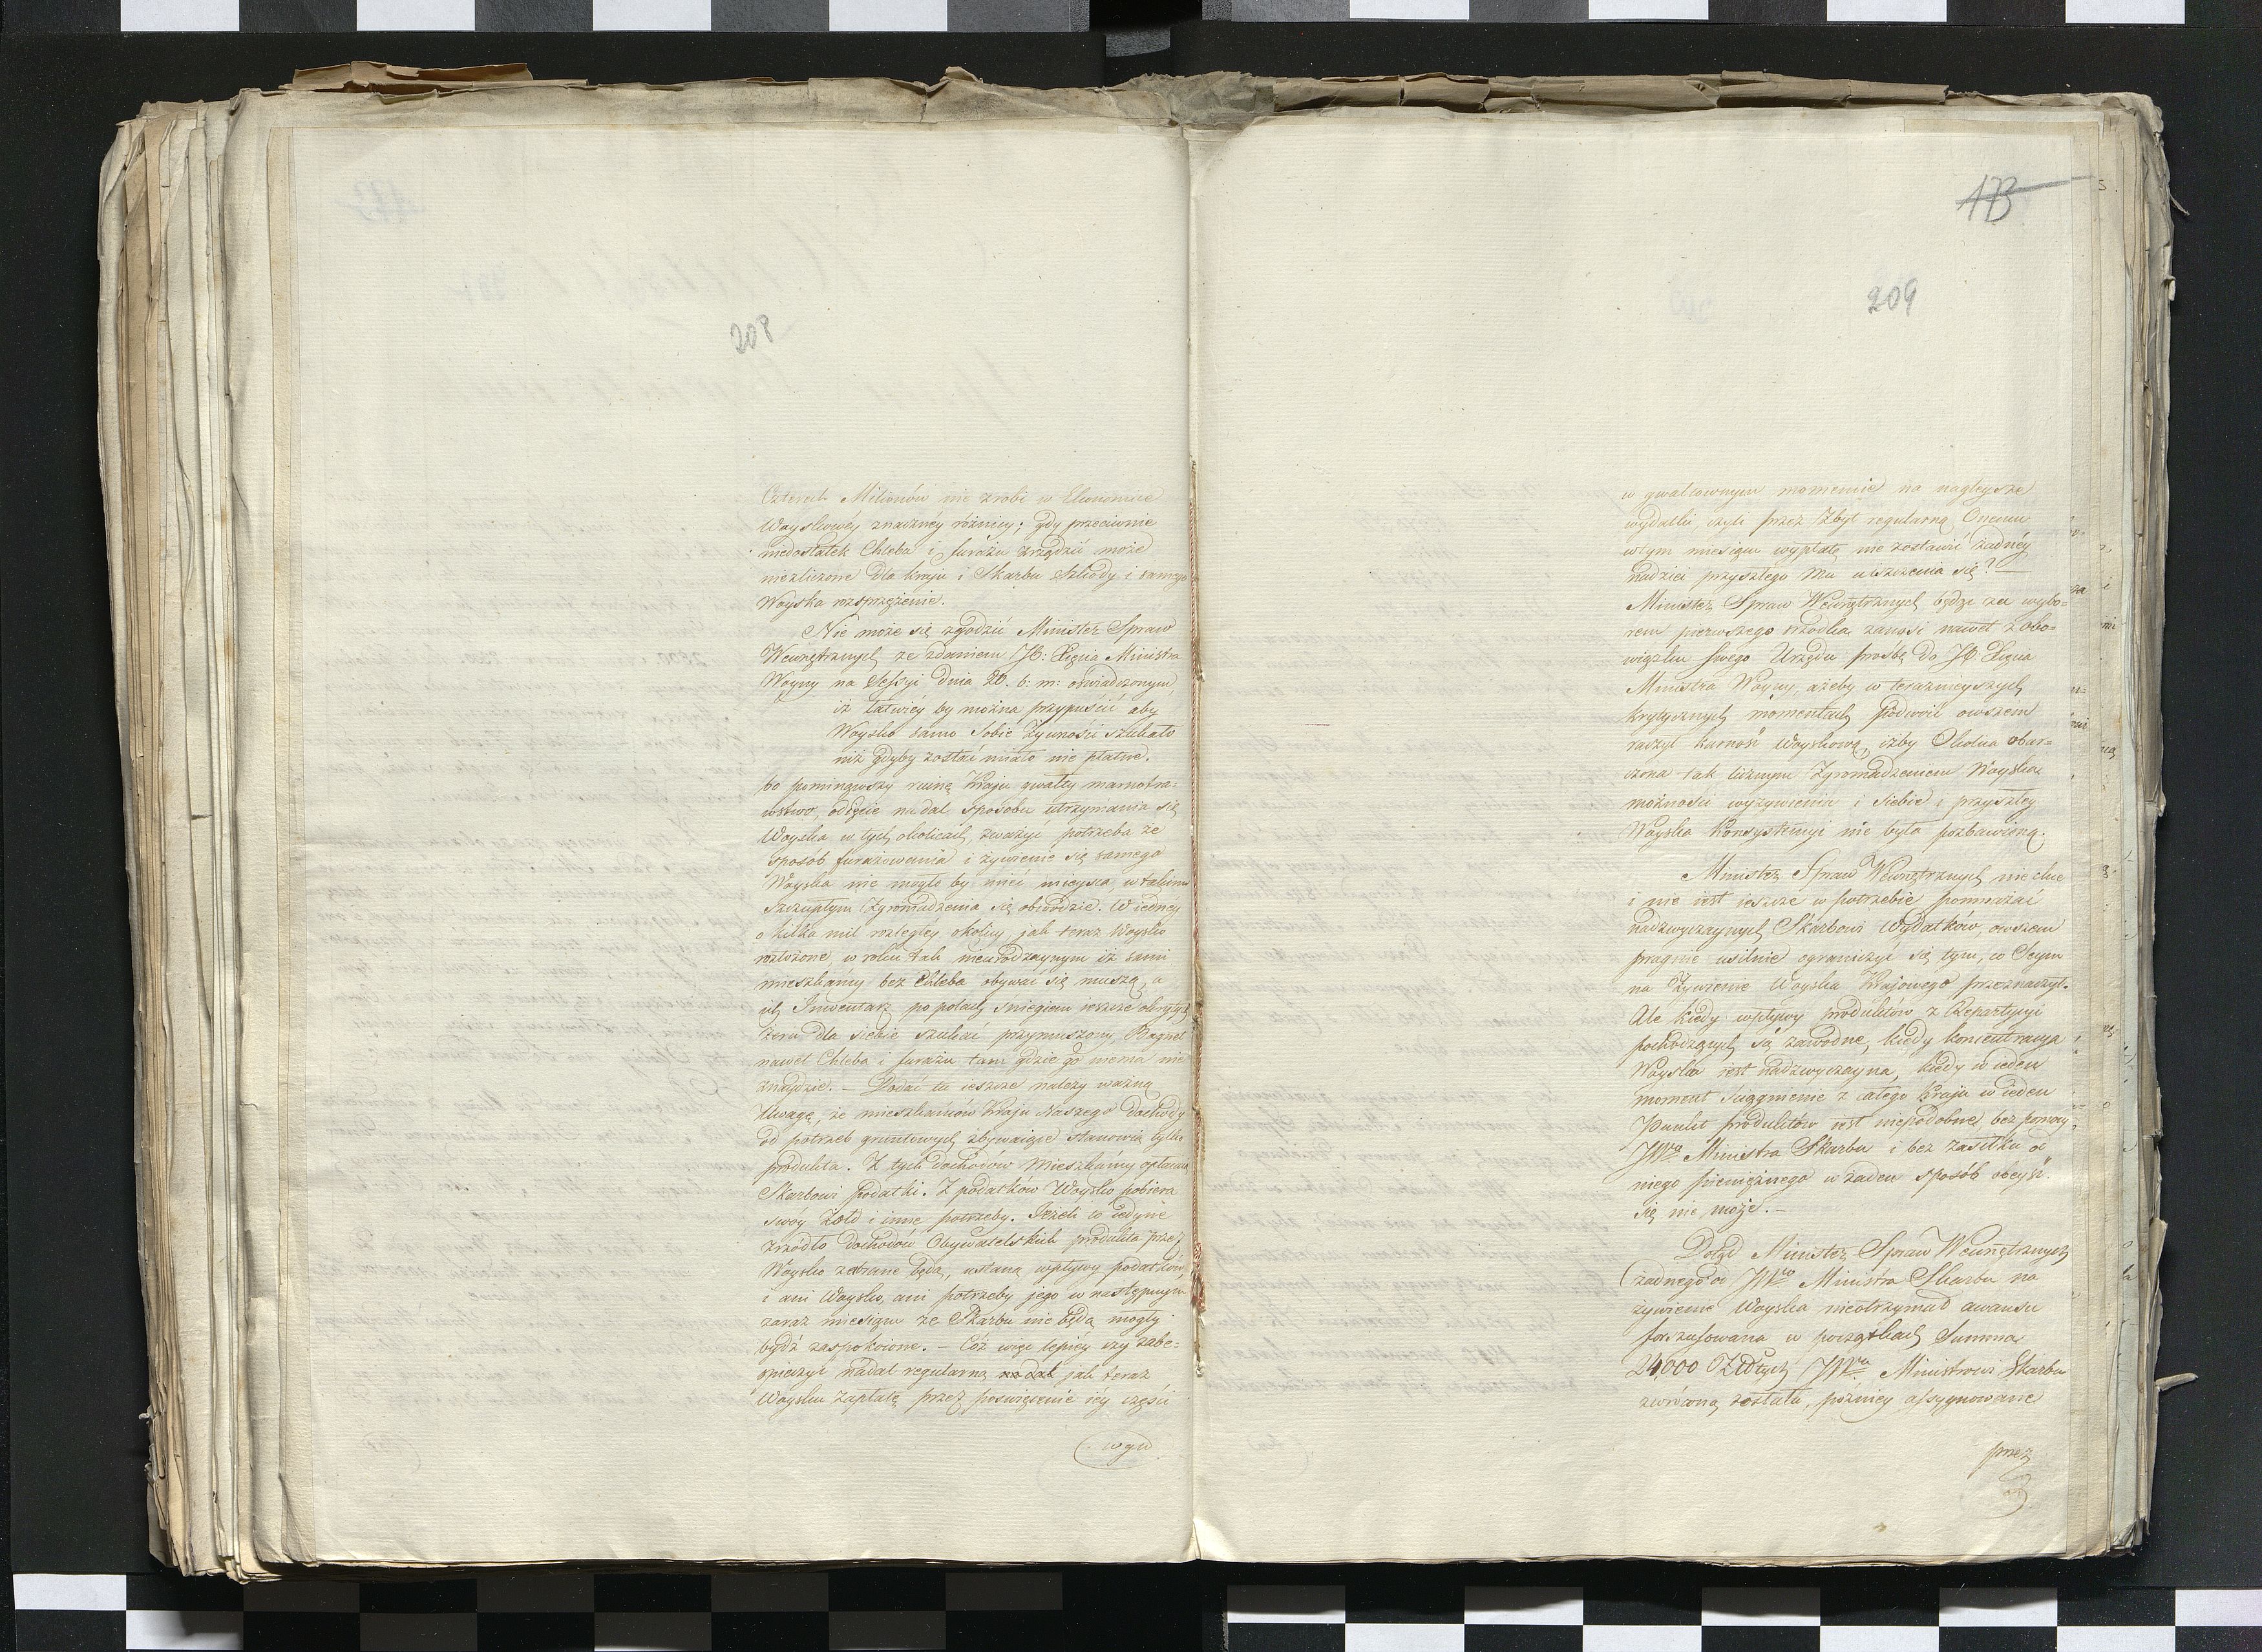 208
Czterech Milionów nie zrobi w Ekonomice
Woyskowéy znaczney różnicy; gdy przeciwnie
niedostatek Chleba i furażu zrządzić może
niezliczone dla kraju i Skarbu Szkody i samego
Woyska rozsprzężenie.
Nie może się zgodzić Minister Spraw
Wewnętrznych ze zdaniem JO: Xięcia Ministra
Woyny na Sessyi dnia 20. b: m: oświadczonym,
iż łatwiéy by można przypuścić aby
Woysko samo Sobie Żywności szukało
niż gdyby zostać miało nie płatne.
bo pominąwszy ruinę Kraju gwałty marnotra-
wstwo, odjęcie nadal sposobu utrzymania się
Woyska w tych okolicach, zważyć potrzeba że
sposób furażowania i żywienie się samego
Woyska nie mogło by mieć mieysca, w takim
szczupłym Zgromadzenia się obwodzie. W iednéy
o kilka mil rozległey okolicy, jak teraz Woysko
rozłożone, w roku tak nieurodzaynym iż sami
mieszkańcy bez Chleba obywać się muszą, a
ich Inwentarz po polach śniegiem ieszcze okrytych
żeru dla siebie szukać przymuszony, Bagnet
nawet Chleba i furażu tam gdzie go niema nie
znaydzie. – Dodać tu ieszcze należy ważną
Uwagę, że mieszkańców Kraju Naszego dochody
od potrzeb gruntowych zbywaiące stanowią tylko
produkta. Z tych dochodów Mieszkańcy opłacaią
Skarbowi podatki. Z podatków Woysko pobiera
swóy Żołd i inne potrzeby. Jeżeli to iedyne
zrzódło dochodów Obywatelskich produkta przez
Woysko zabrane będą, ustaną wpływy podatków,
i ani Woysko, ani potrzeby jego w następnym
zaraz miesiącu ze Skarbu nie będą mogły
bydź zaspokoione. – Cóż więc lepiéy czy zabe-
spieczyć nadal regularną nadal jak teraz
Woysku zapłatę przez poswięcenie iéy części
wgw
173
209
w gwałtownym momencie na nagleysze
wydatki, czyli przez zbyt regularną Onemu
w tym miesiącu wypłatę nie zostawić żadnéy
nadziei przyszłego Mu uiszczenia się? –
Minister Spraw Wewnętrznych będąc za wybo-
rem pierwszego środka zanosi nawet z obo-
wiązku swego Urzędu prosbę do JO: Xięcia
Ministra Woyny, ażeby w teraznieyszych
krytycznych momentach podwoić owszem
raczył karność Woyskową, iżby Okolica obar-
czona tak licznym Zgromadzeniem Woyska
możności wyżywienia i siebie i przyszłey
Woyska Konsystencyi nie była pozbawioną.
Minister Spraw Wewnętrznych nie chce
i nie iest ieszcze w potrzebie pomnażać
nadzwyczaynych Skarbowi Wydatków, owszem
pragnie usilnie ograniczyć się tym, co Seym
na Żywienie Woyska Krajowego przeznaczył.
Ale kiedy wpływy produktów z Repartycyi
pochodzących są zawodne, kiedy koncentracya
Woyska iest nadzwyczayna, kiedy w ieden
moment ściągnienie z całego Kraju w ieden
Punkt produktów iest niepodobne bez pomocy
JWgo Ministra Skarbu i bez zasiłku od
niego pieniężnego w żaden sposób obeyść
się nie może. –
Dotąd Minister Spraw Wewnętrznych
żadnego od JWgo Ministra Skarbu na
żywienie Woyska nieotrzymał awansu
forszusowana w początkach Summa
24,000 Złłtych JWmu Ministrowi Skarbu
zwróconą została, pózniey assygnowane
przez